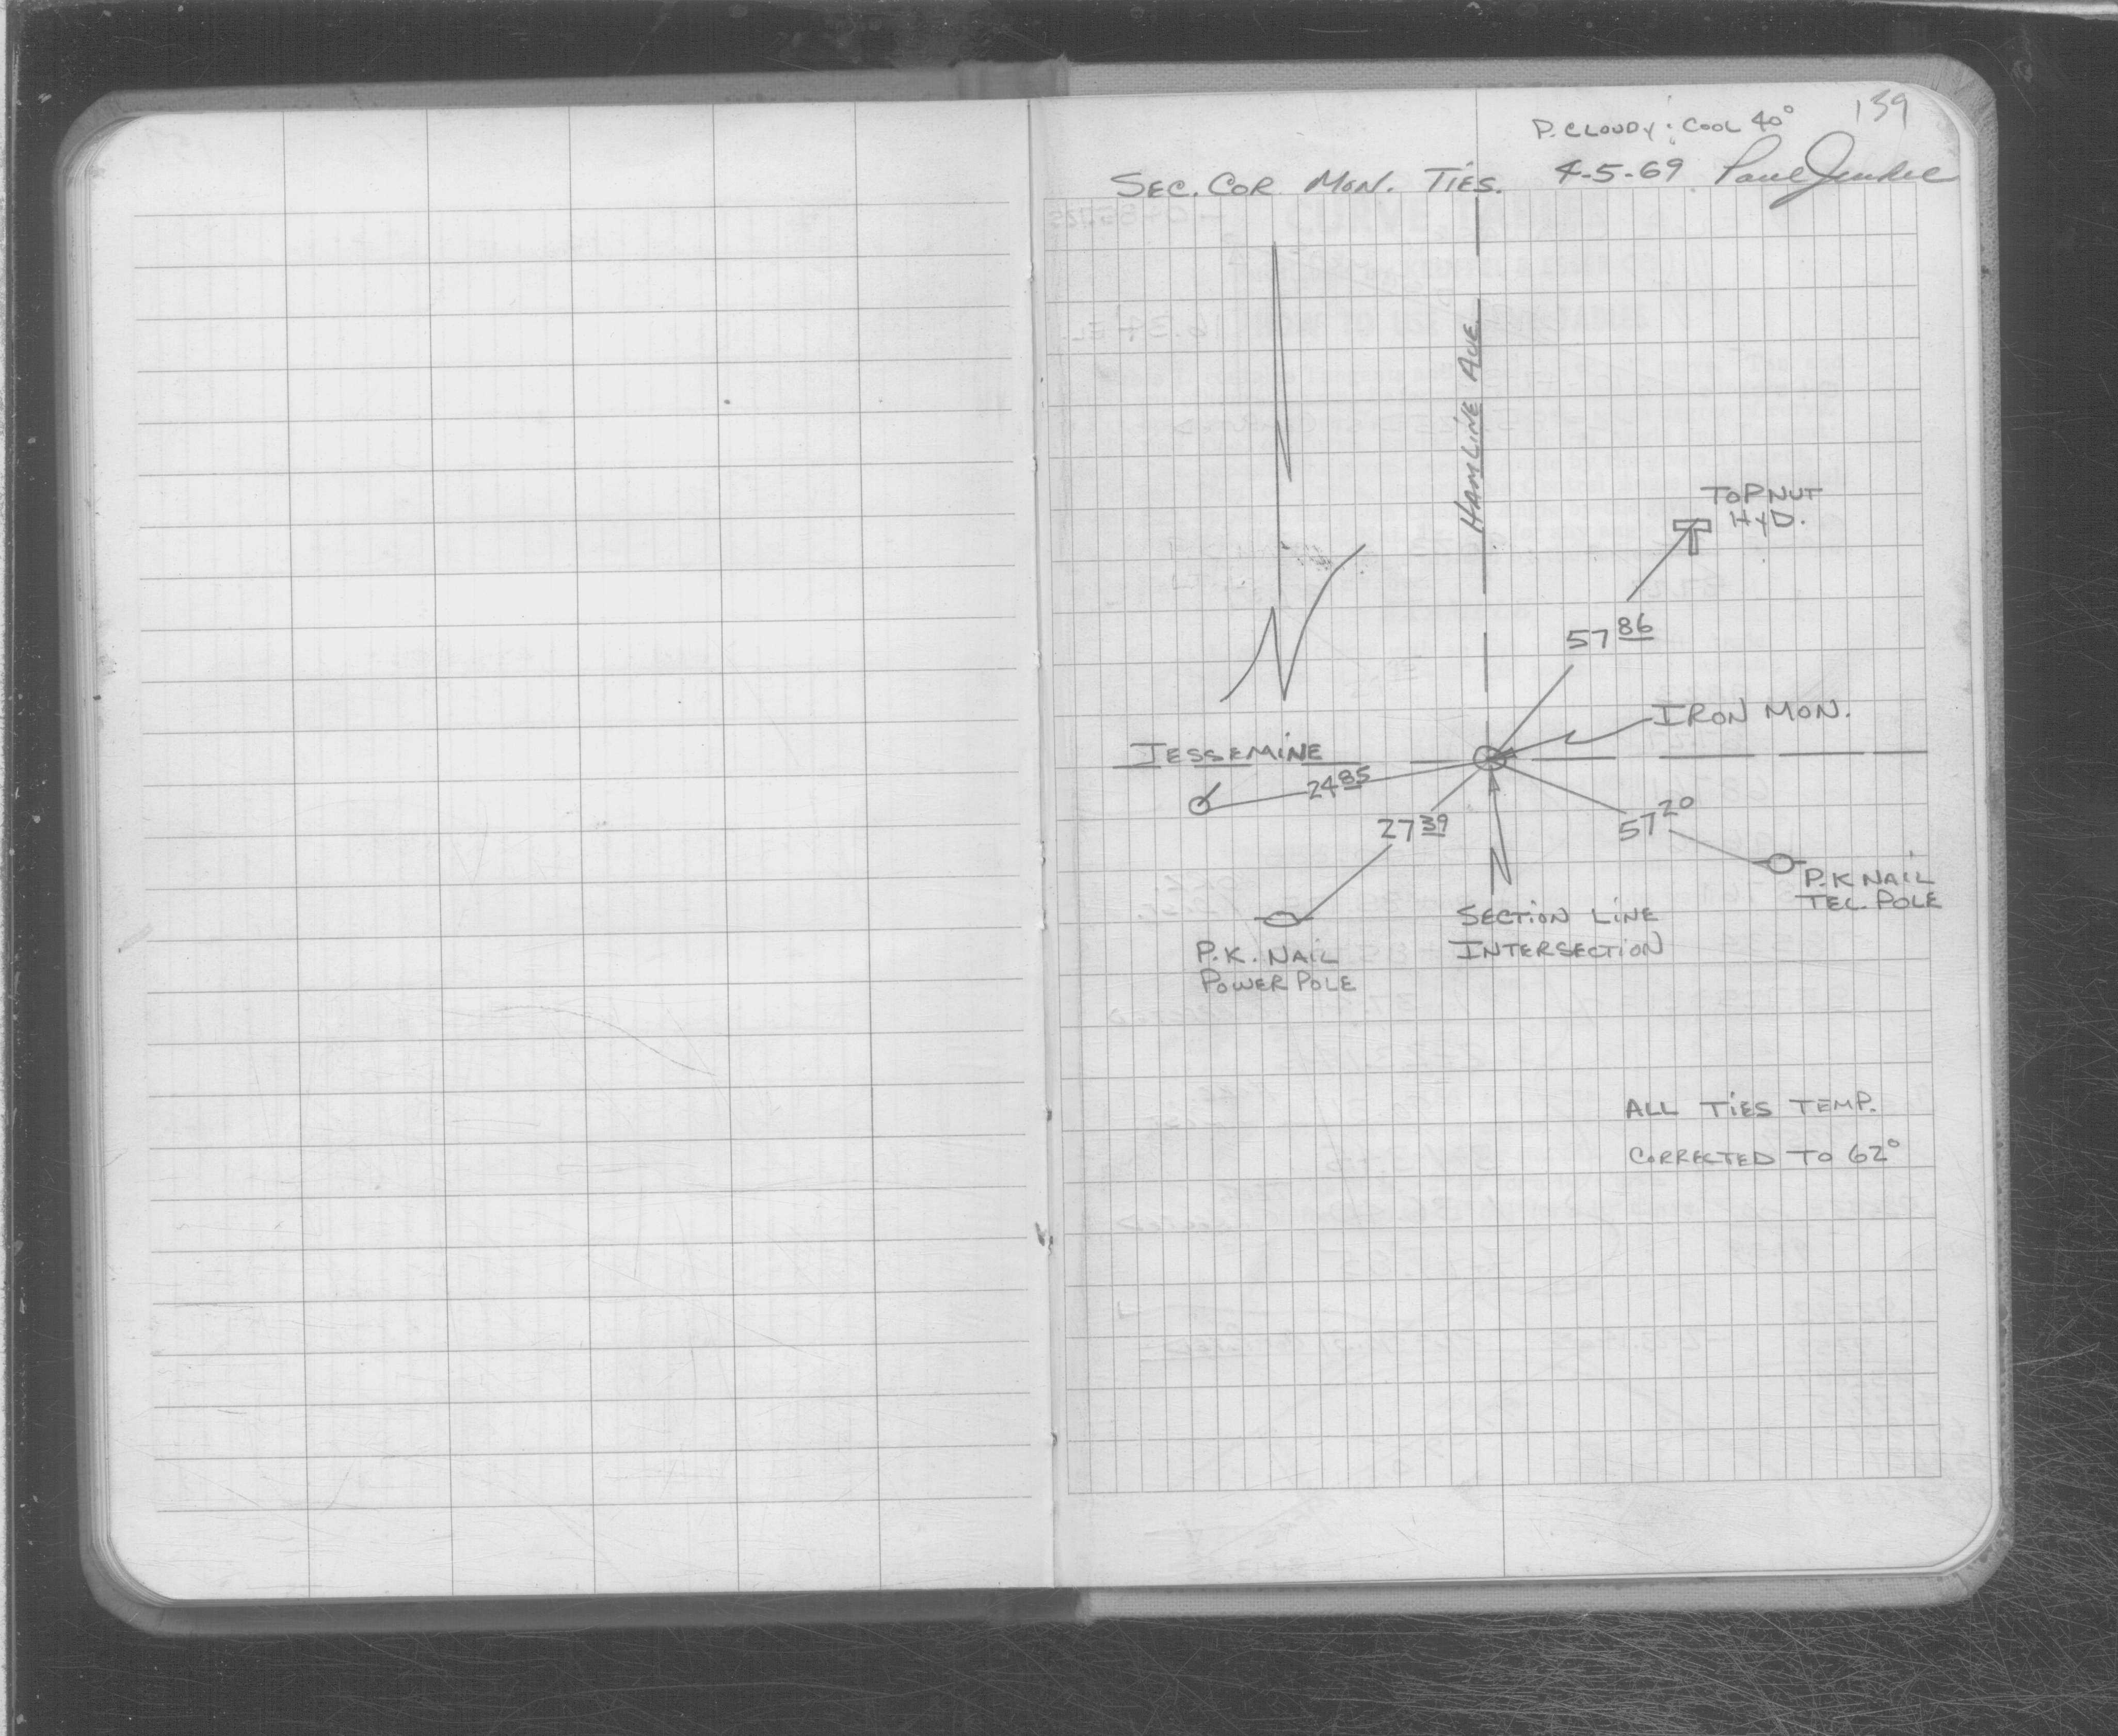 139
P. CLOUDY: COOL 40°
SEC. COR MON. TIES. 4-5-69 Paul
HAMLINE AVE.
TOP NUT
HYD.
57 86
IRON MON.
JESSEMINE
24 85
27 39
57 20
P.K NAIL
TEL. POLE
SECTION LINE
INTERSECTION
P.K. NAIL
POWER POLE
ALL TIES TEMP.
CORRECTED TO 62°